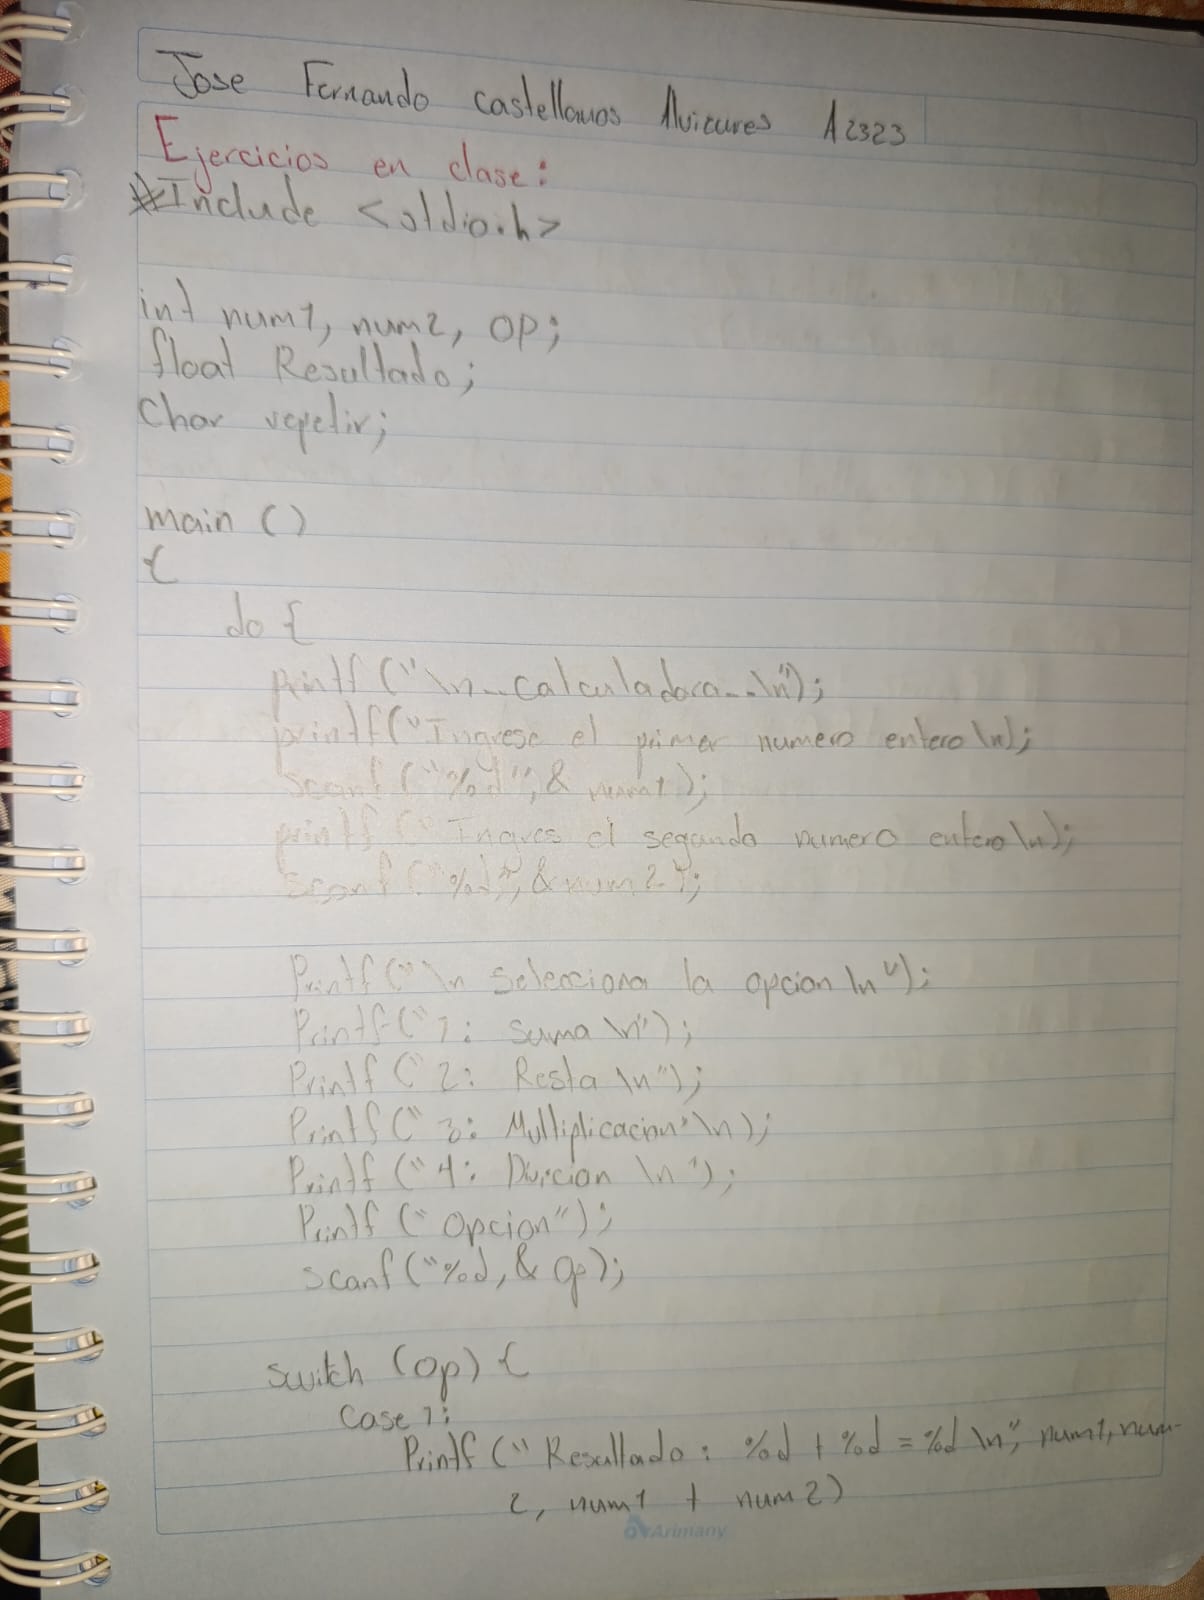 Jose Fernando Castellanos Alvizures A2323
Ejercicios en clase:
#Include <stdio.h>
int num1, num2, op;
float Resultado;
Char repetir;
main ()
{
do {
printf ("\n--calculadora--\n");
printf("Ingrese el primer numero entero \n);
Scanf ("%d", & num1);
printf ("Ingres el segundo numero entero \n);
Scanf ("%d", & num2);
Printf ("\n Selecciona la opcion \n");
Printf ("1: suma \n");
Printf ("2: Resta \n");
Printf (" 3: Multiplicacion" \n);
Printf ("4: Divicion \n");
Printf ("Opcion");
scanf ("%d, & op);
switch (op) {
Case 1:
Printf ("Resultado: %d + %d = %d \n", num1, num-
2, num1 + num2)
Arimany